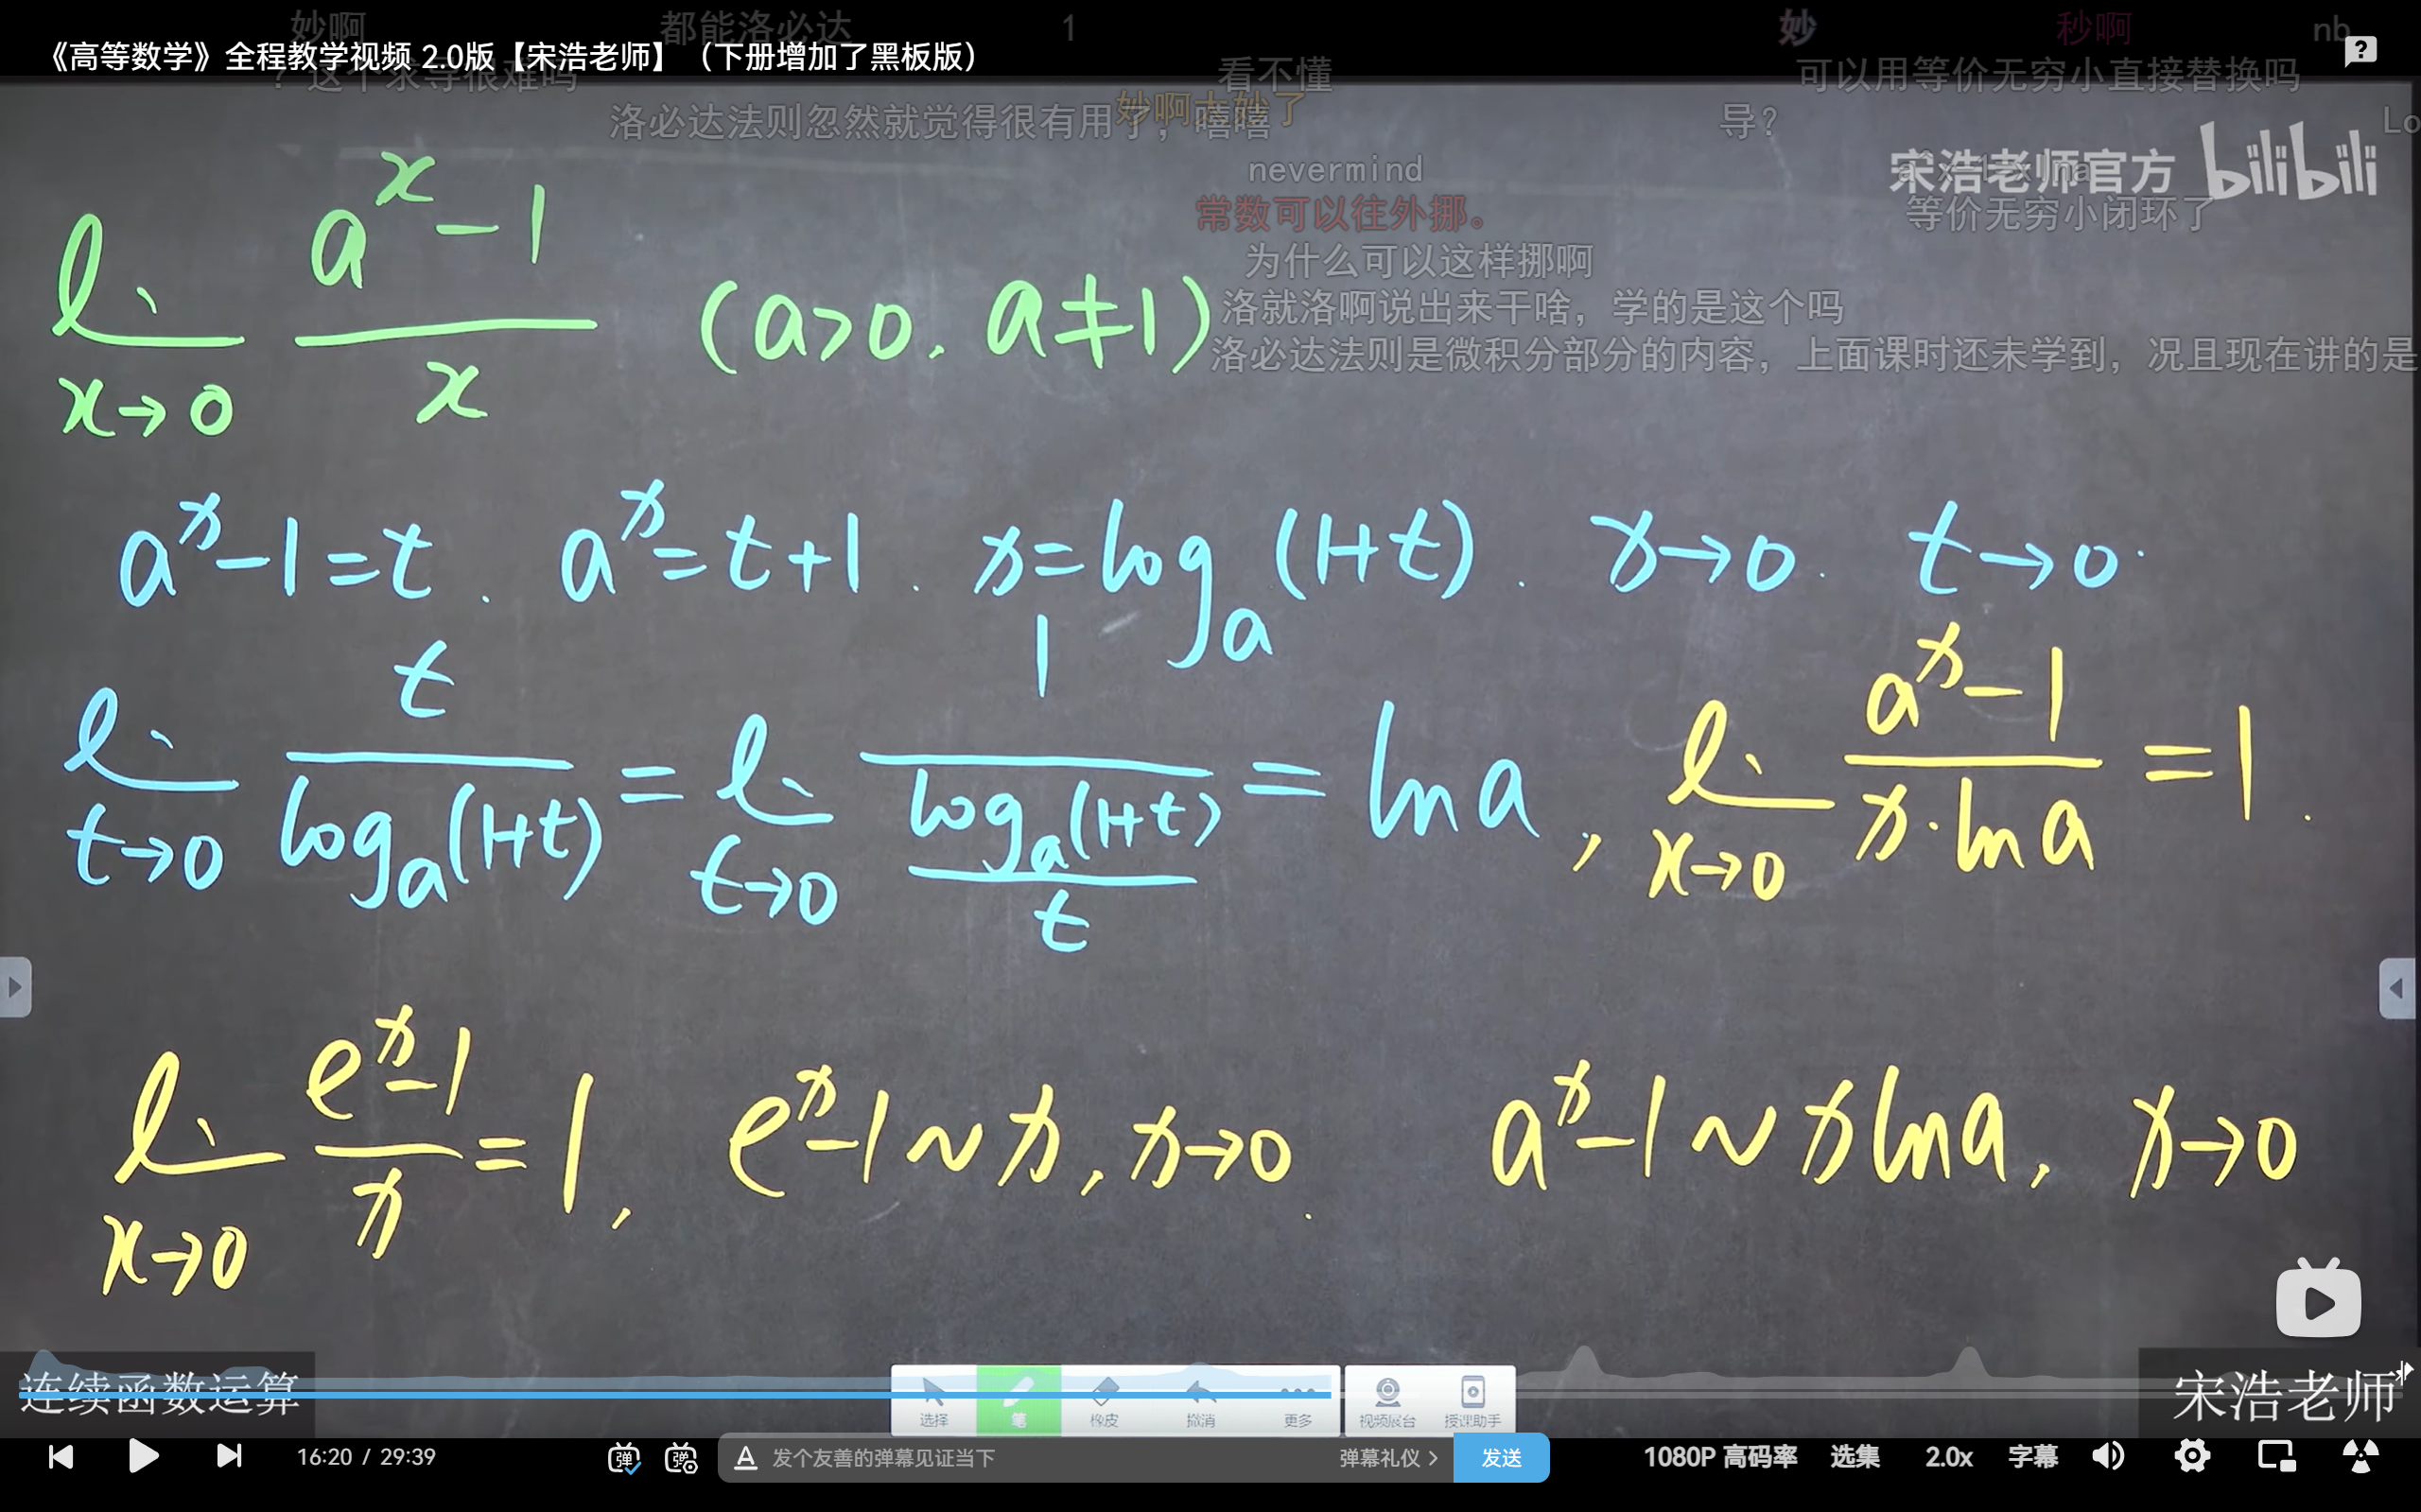 妙啊
都能洛必达
1
妙
秒啊
nb
《高等数学》全程教学视频 2.0版【宋浩老师】（下册增加了黑板版）
？这个求导很难吗
看不懂
可以用等价无穷小直接替换吗
妙啊太妙了
洛必达法则忽然就觉得很有用了，嘻嘻
导?
Lo
nevermind
宋浩老师官方 bilibili
常数可以往外挪。
等价无穷小闭环了
为什么可以这样挪啊
洛就洛啊说出来干啥，学的是这个吗
洛必达法则是微积分部分的内容，上面课时还未学到，况且现在讲的是
lim_{x→0} (a^x-1)/x (a>0. a≠1)
a^x-1=t. a^x=t+1. x=log_a(1+t). x→0. t→0.
lim_{t→0} t/log_a(1+t) = lim_{t→0} 1/(log_a(1+t)/t) = ln a, lim_{x→0} (a^x-1)/(x·ln a) = 1.
lim_{x→0} (e^x-1)/x = 1, e^x-1~x, x→0. a^x-1~x ln a, x→0
连续函数运算
选择
笔
橡皮
撤消
更多
视频展台
授课助手
宋浩老师
16:20 / 29:39
弹
弹
A 发个友善的弹幕见证当下
弹幕礼仪 >
发送
1080P 高码率
选集
2.0x
字幕